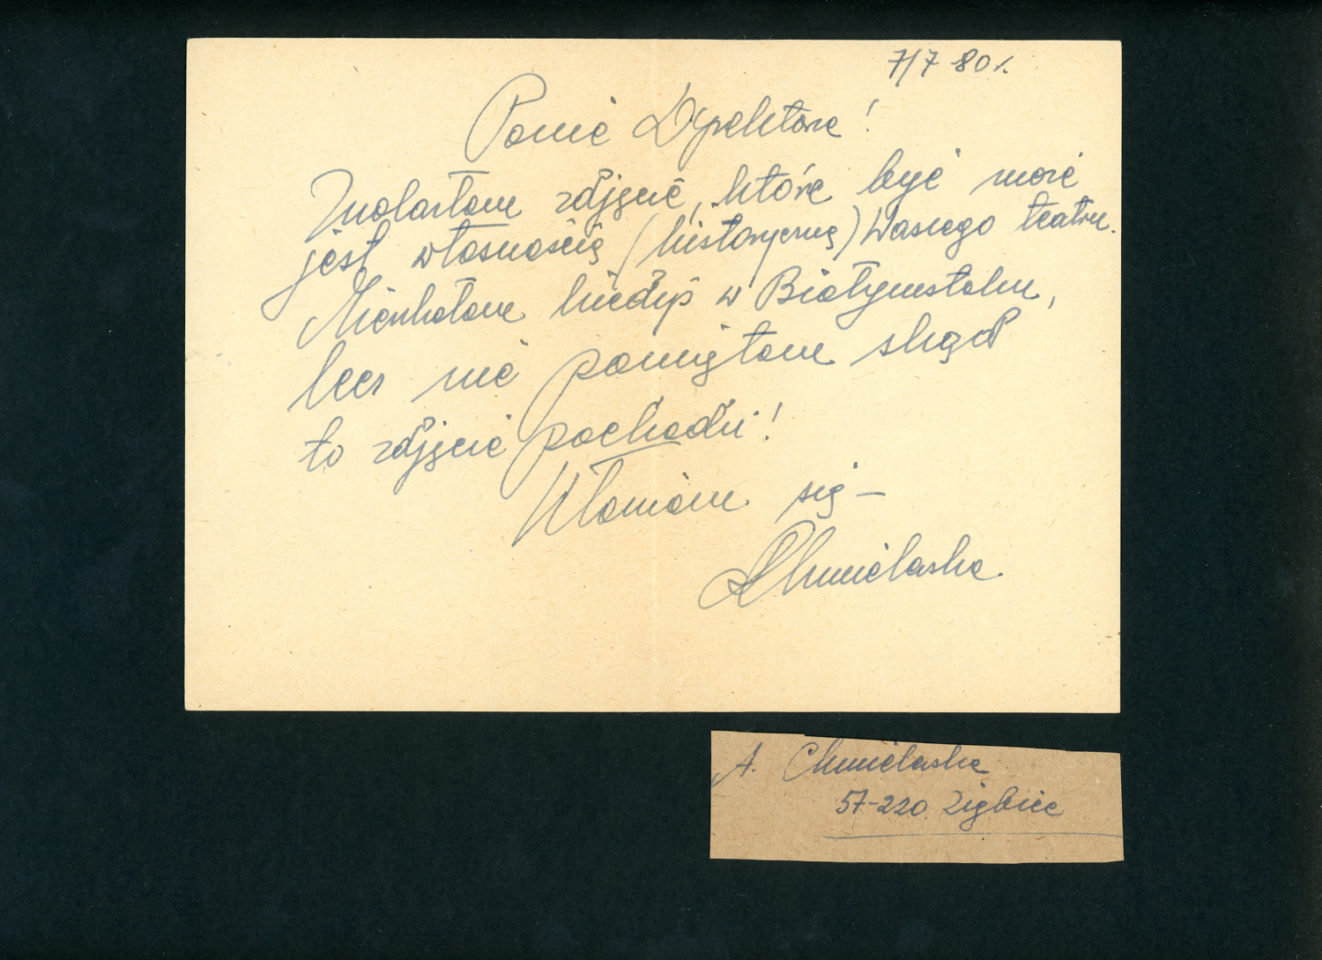 7/7 80 r.
Panie Dyrektorze!
Znalazłam zdjęcie, które być może
jest własnością (historyczną) Waszego teatru.
Mieszkałam kiedyś w Białymstoku,
lecz nie pamiętam skąd
to zdjęcie pochodzi!
Kłaniam się –
AChmielaska
A. Chmielaska
57-220 Ziębice